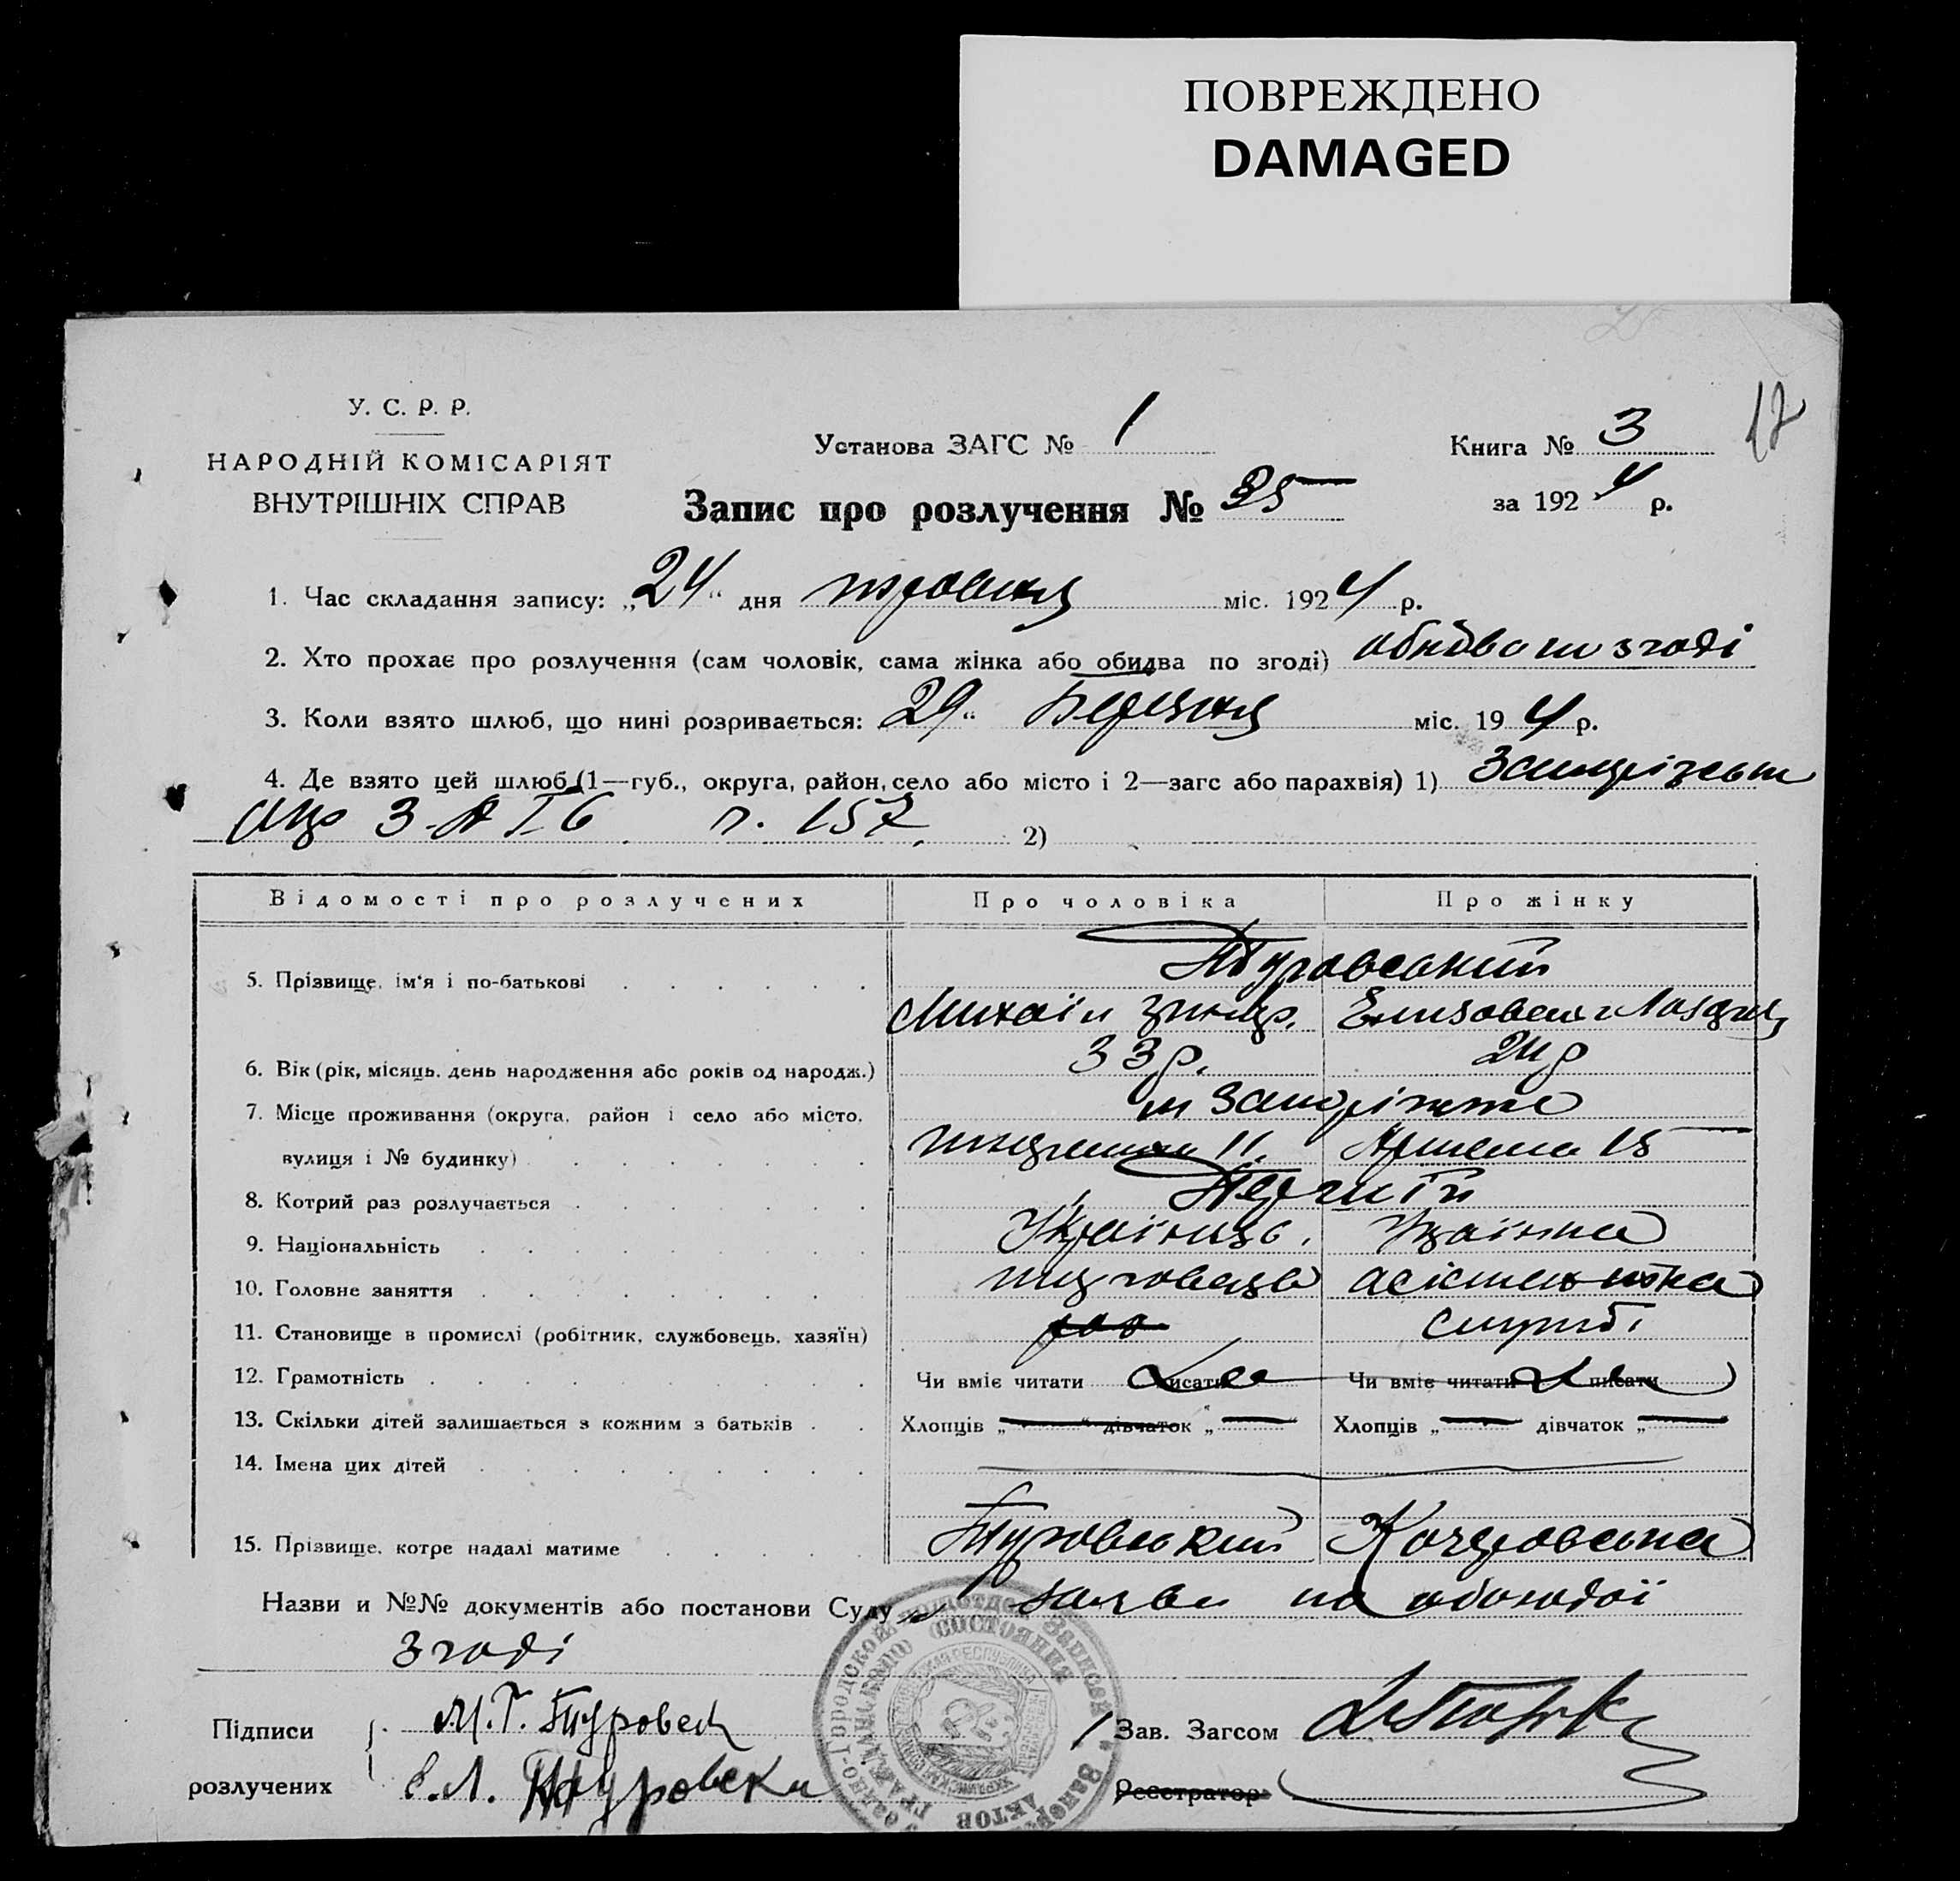 ПОВРЕЖДЕНО
DAMAGED
17
У. С. Р. Р.
НАРОДНІЙ КОМІСАРІЯТ
ВНУТРІШНІХ СПРАВ
Установа ЗАГС № 1
Книга № 3
за 1924 р.
Запис про розлучення № 35
1. Час складання запису: „24“ дня травня міс. 1924 р.
2. Хто прохає про розлучення (сам чоловік, сама жінка або обидва по згоді) обидва по згоді
3. Коли взято шлюб, що нині розривається: 29“ Березня міс. 19 4 р.
4. Де взято цей шлюб (1—губ., округа, район, село або місто і 2—загс або парахвія) 1)
157 2)
Відомості про розлучених Про чоловіка Про жінку
5. Прізвище, ім'я і по-батькові Туровський
Михаїл Елизавета
6. Вік (рік, місяць, день народження або років од народж.) 33 р. 24 р
7. Місце проживання (округа, район і село або місто, м Запоріжже
вулиця і № будинку) 11. Артема 15
8. Котрий раз розлучається Перший
9. Національність Українець. Українка
10. Головне заняття асістентка
11. Становище в промислі (робітник, службовець, хазяїн) служб.
12. Грамотність Чи вміє читати писати Чи вміє читати писати
13. Скільки дітей залишається з кожним з батьків Хлопців „ “ дівчаток „ “ Хлопців „ “ дівчаток „ “
14. Імена цих дітей
15. Прізвище, котре надалі матиме Туровський
Назви и №№ документів або постанови Суду заява по обоюдої
згоді
Підписи М. Г. Туровск
розлучених Е. Л. Туровска
1 Зав. Загсом
Реєстратор